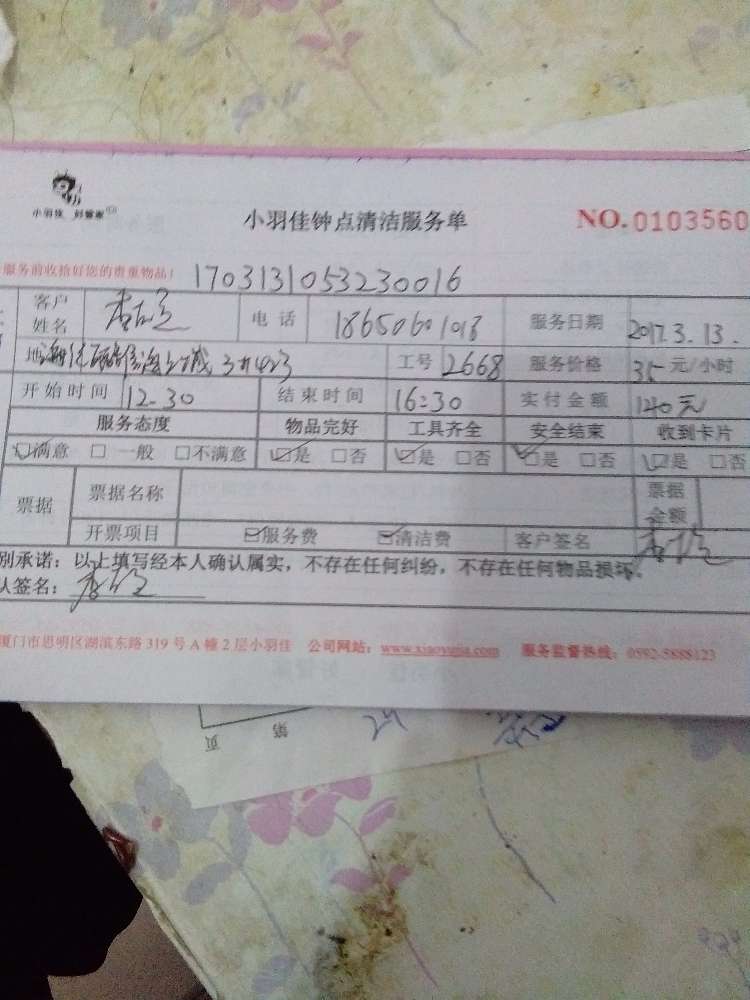 小羽佳 好管家
小羽佳钟点清洁服务单
NO.0103560
服务前收拾好您的贵重物品！
1703131053230016
客户姓名 电话 18650601013 服务日期 2017.3.13.
地 工号 2668 服务价格 35元/小时
开始时间 12.30 结束时间 16:30 实付金额 140元
服务态度 物品完好 工具齐全 安全结束 收到卡片
☑满意 □一般 □不满意 ☑是 □否 ☑是 □否 ☑是 □否 ☑是 □否
票据 票据名称 票据金额
开票项目 ☑服务费 ☑清洁费 客户签名
别承诺：以上填写经本人确认属实，不存在任何纠纷，不存在任何物品损坏。
人签名：
厦门市思明区湖滨东路319号A幢2层小羽佳 公司网站：www.xiaoyujia.com 服务监督热线：0592-5888123
页 第